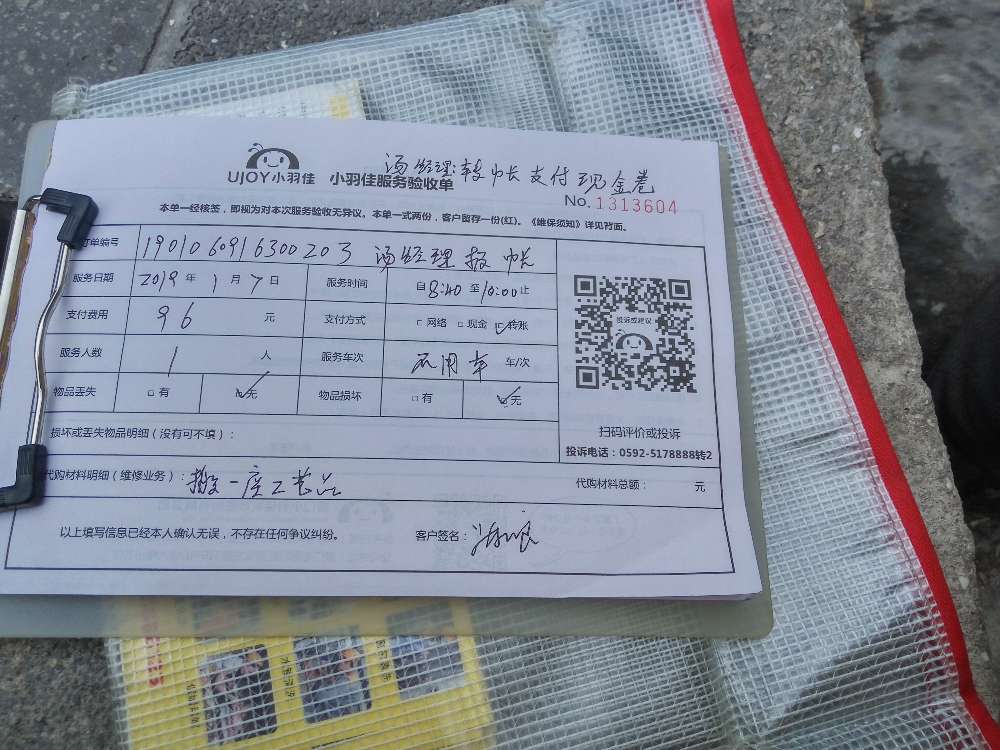 汤经理:转帐支付现金卷
UJOY小羽佳 小羽佳服务验收单
No.1313604
本单一经核签，即视为对本次服务验收无异议。本单一式两份，客户暂存一份(红)。《维保须知》详见背面。
订单编号 1901060916300203 汤经理报帐
服务日期 2019年1月7日 服务时间 自8:40至10:00止
支付费用 96 元 支付方式 □网络 □现金 ☑转账
投诉或建议
服务人数 1 人 服务车次 不用车 车/次
物品丢失 □有 ☑无 物品损坏 □有 ☑无
扫码评价或投诉
损坏或丢失物品明细（没有可不填）：
投诉电话：0592-5178888转2
代购材料明细（维修业务）：搬一座工艺品 代购材料总额： 元
以上填写信息已经本人确认无误，不存在任何争议纠纷。 客户签名：